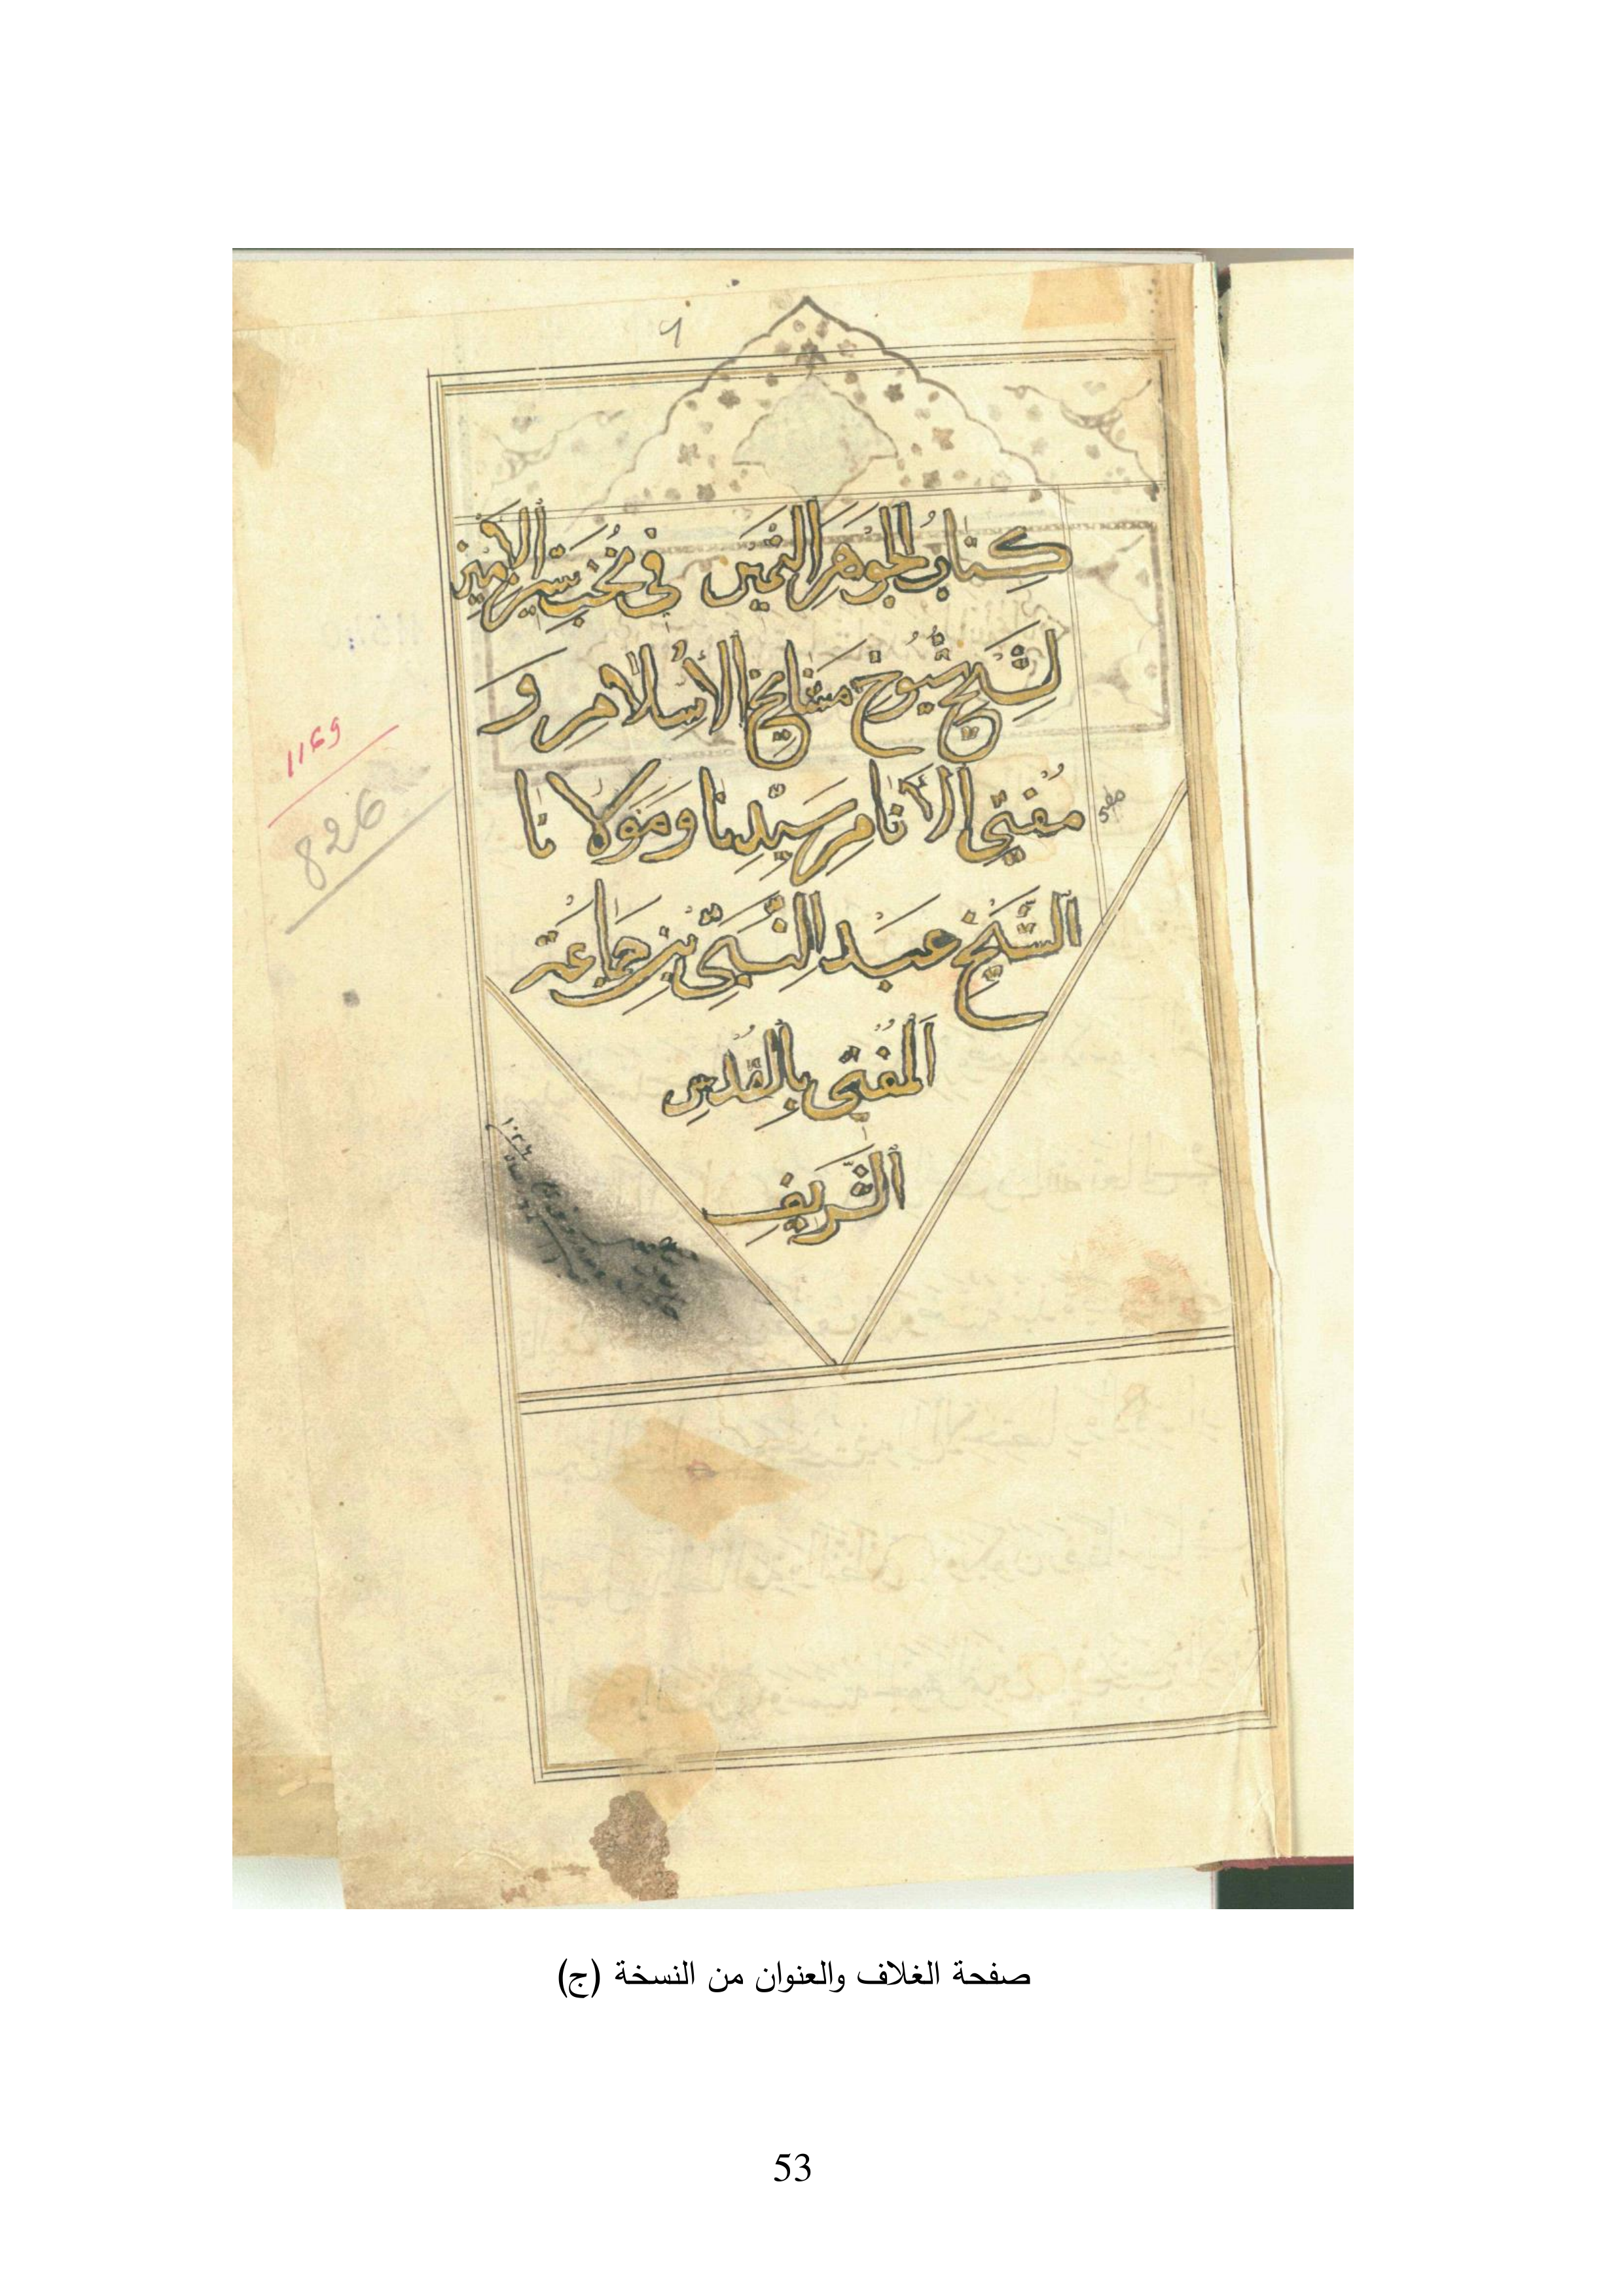 كتاب الجوهر الثمين في نخب سير الأمين
لشيخ شيوخ مشايخ الإسلام و
مفتي الأنام سيدنا ومولانا
1169
826
الشيخ عبد النبي بن جماعة
المفتي بالقدس
الشريف
صفحة الغلاف والعنوان من النسخة (ج)
53